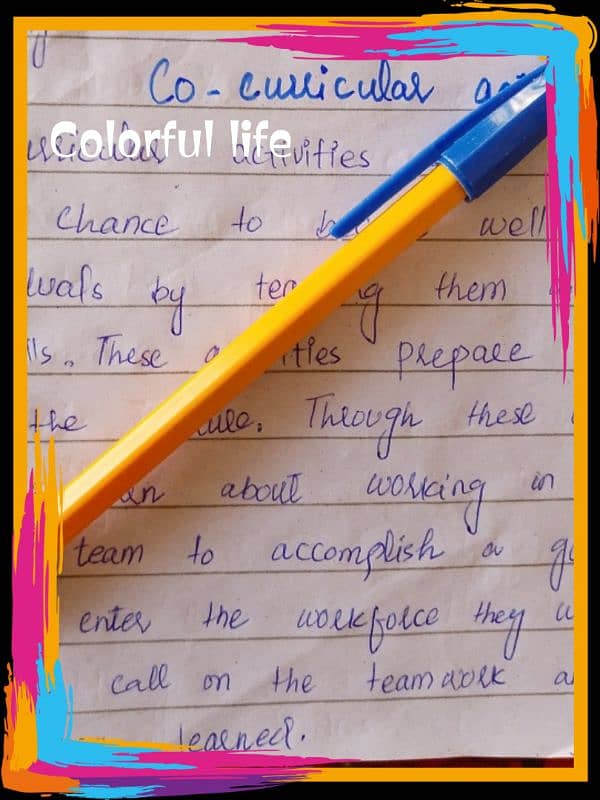 Co-curricular
Colorful life
activities
chance to well
by them
These prepare
the Through these
about working in
team to accomplish a
enter the workforce they
call on the teamwork
learned.